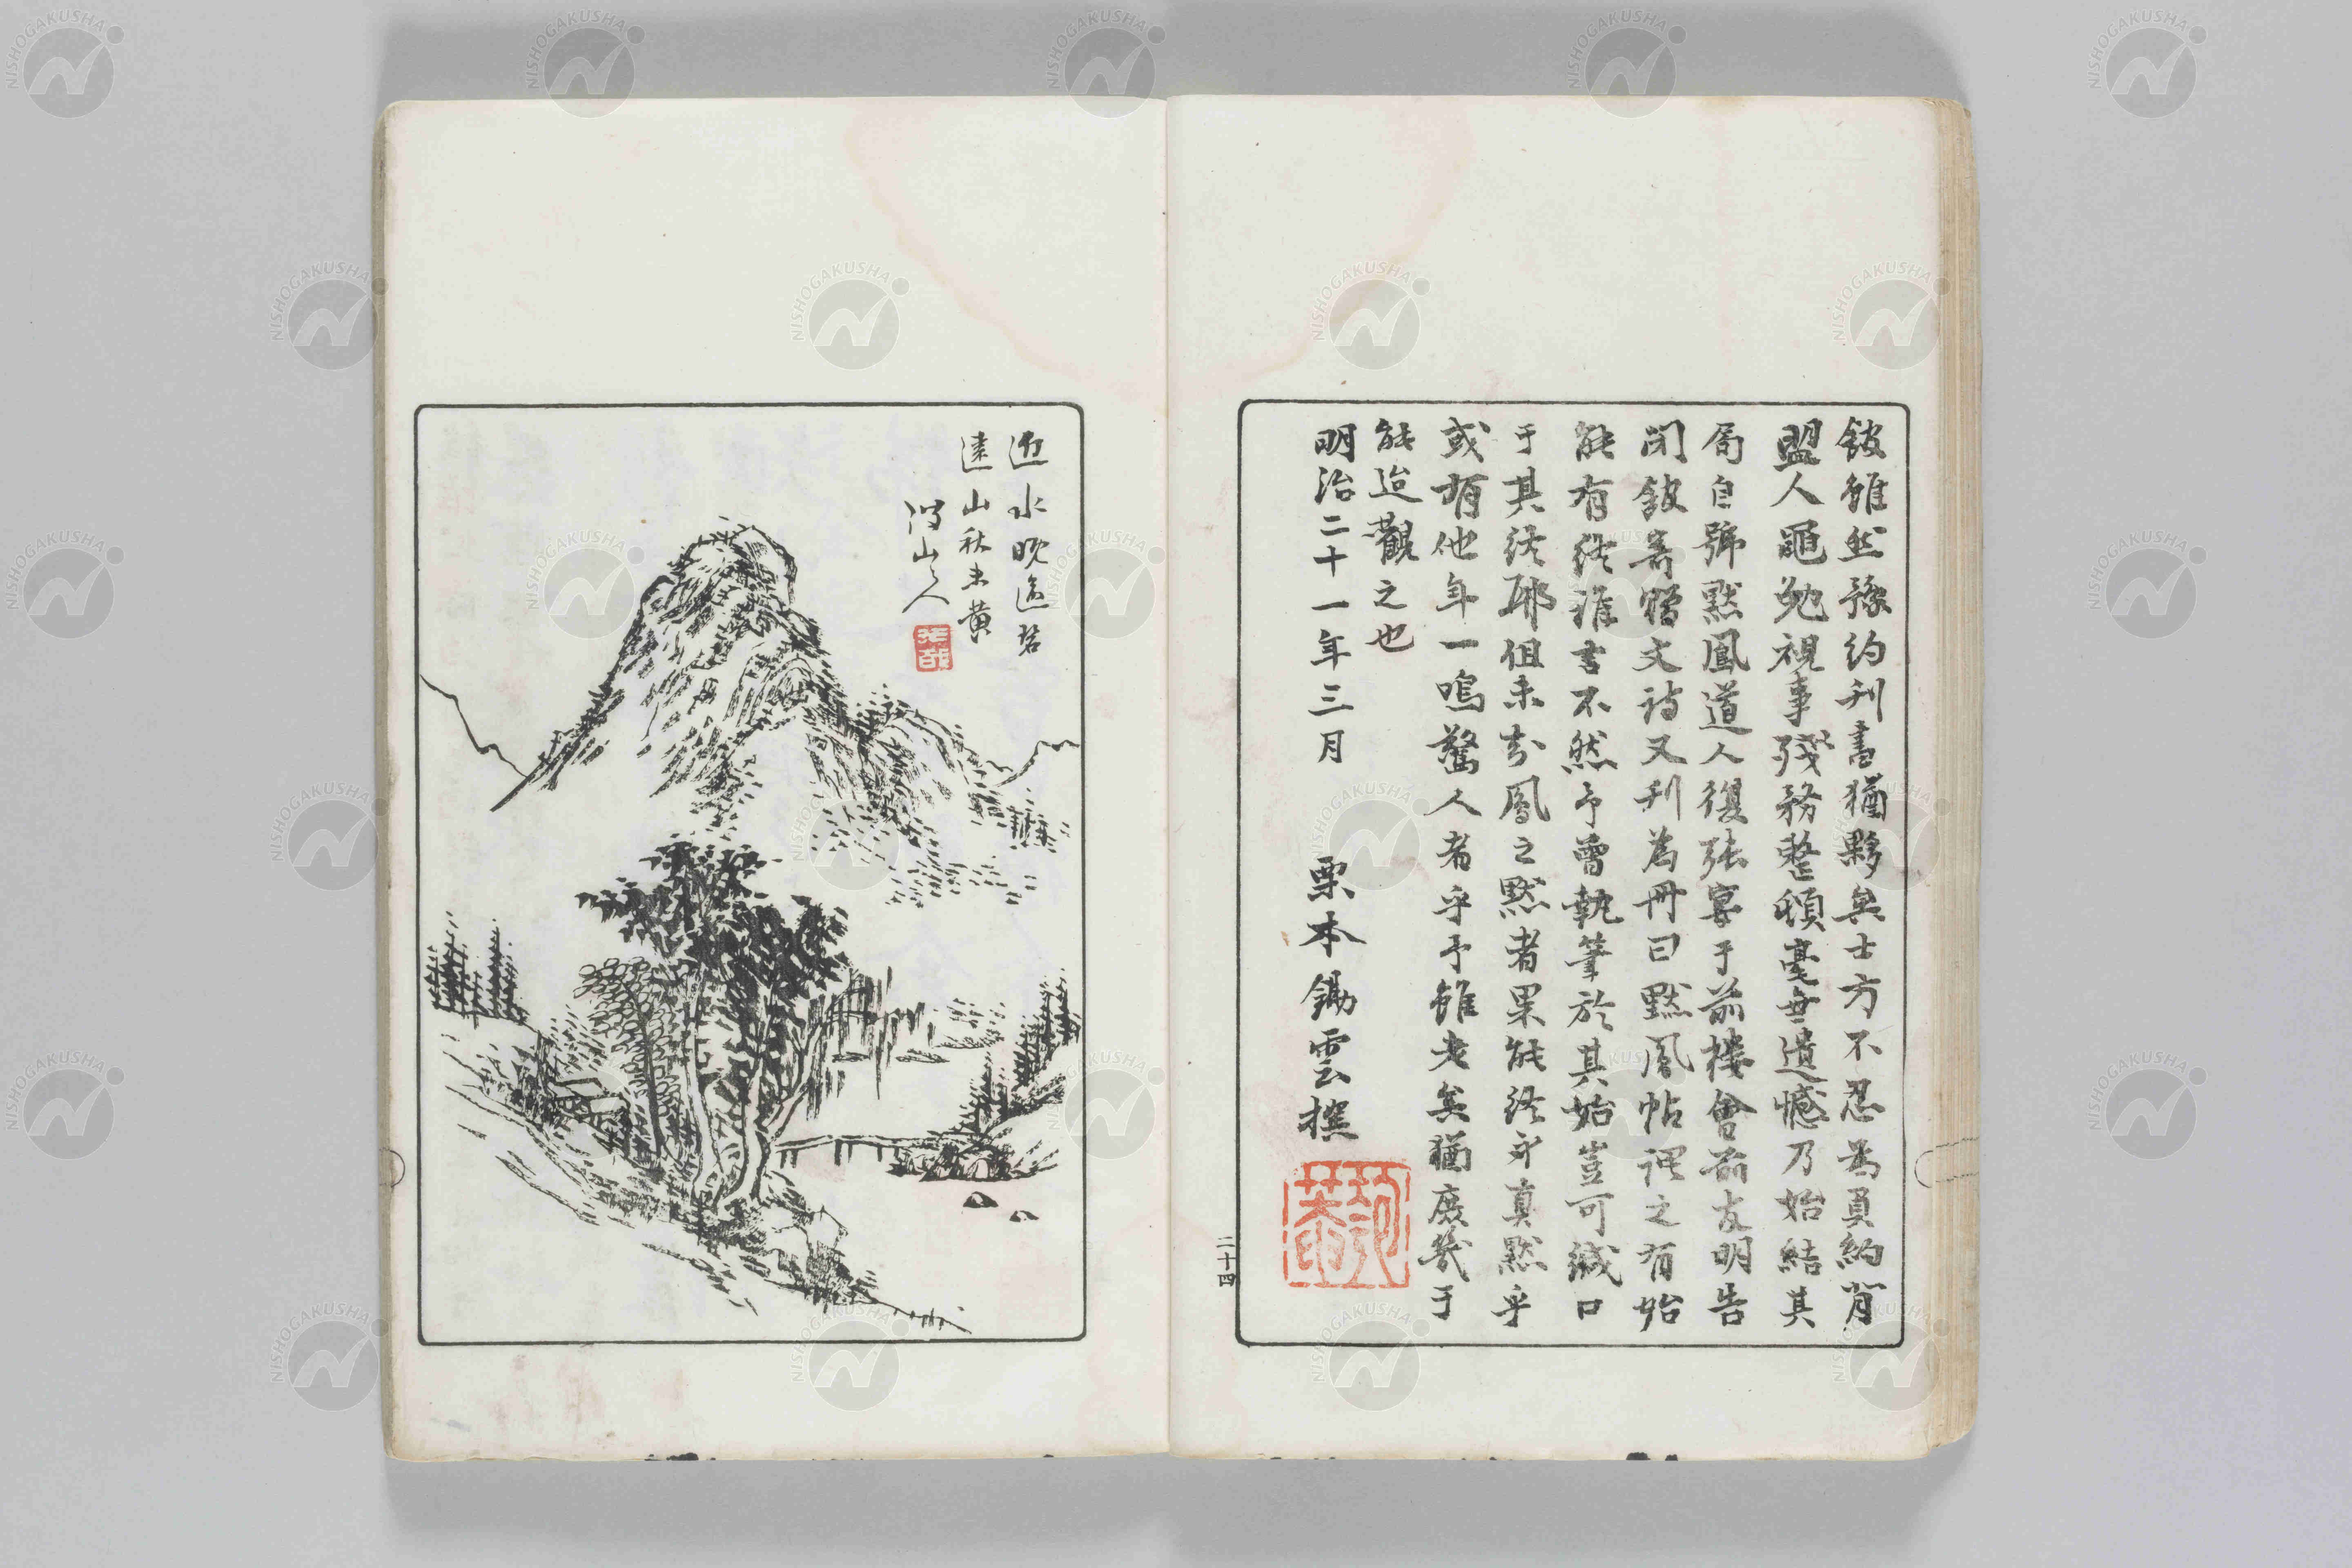 錢雖然豫約刊書猶夥矣士方不忍為負約背
盟人黽勉視事殘務整頓毫無遺憾乃始結其
局自號默鳳道人復張宴于前樓會前友明告
閉錢寄贈文詩又刊為冊曰默鳳帖謂之有始
能有終誰言不然予曾執筆於其始豈可緘口
于其終耶但未知鳳之默者果能終身真默乎
或有他年一鳴驚人者乎予雖老矣猶庶幾于
能迨觀之也
明治二十一年三月 栗本鋤雲撰
二十四
近水晚逾碧
遠山秋未黃
山人
NISHOGAKUSHA